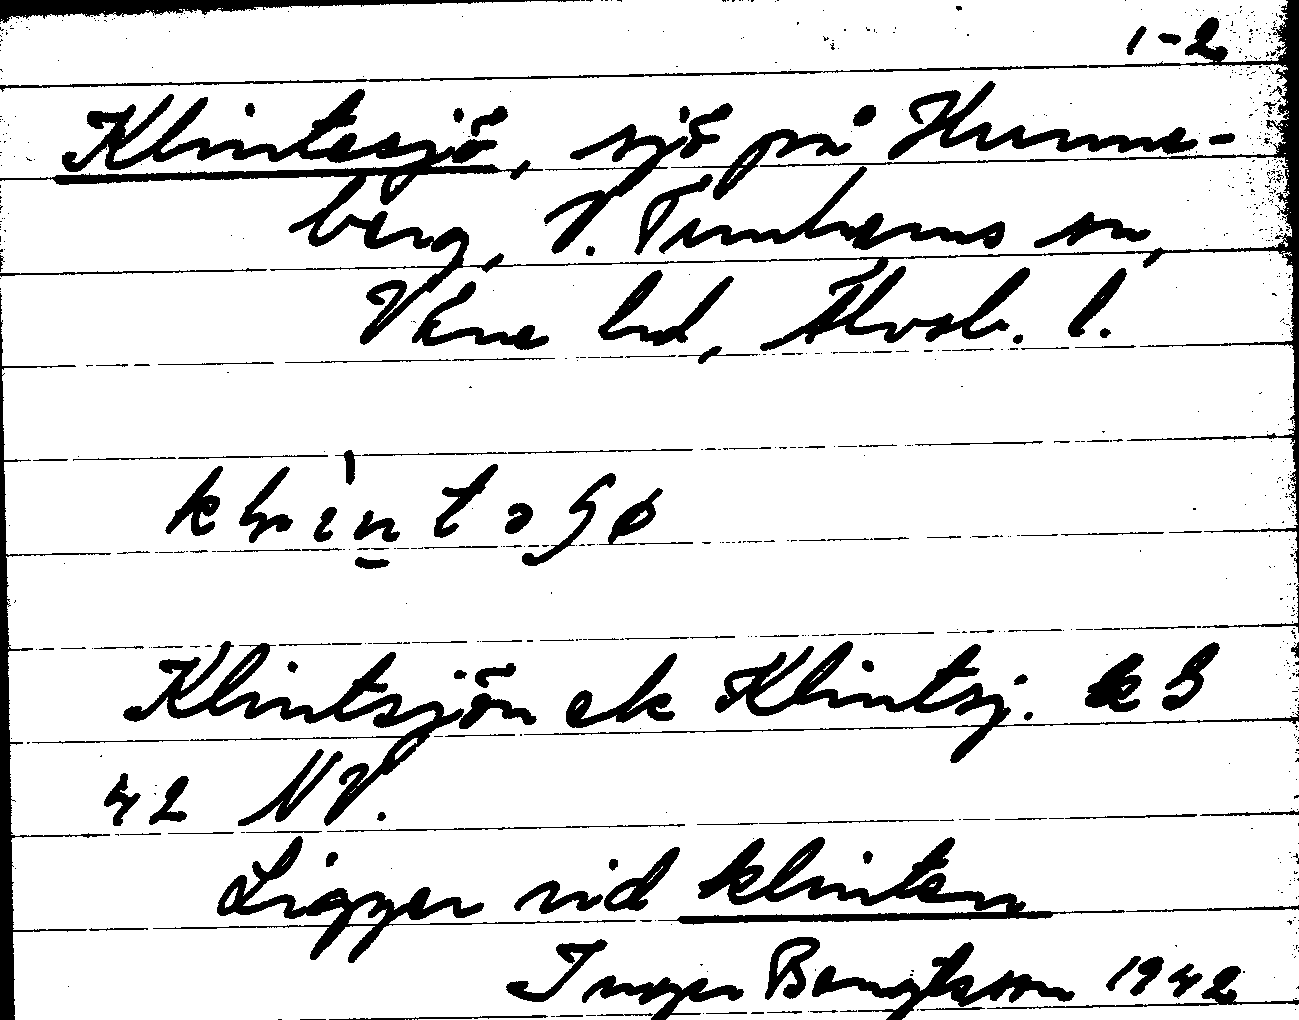 1-2
Klintesjö, sjö på Hunne-
berg, V. Tunhems sn,
Väne hd, Älvsb. l.
Klintsjön ek Klintsj. k G
42 NV.
Ligger vid klinten
Inger Bengtsson 1942